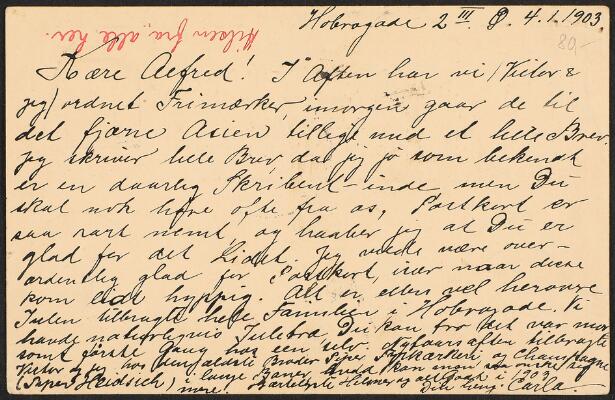 Hilsen fra alle her.
Hobrogade 2 III. Ø. 4.1.1903
80,-
Kære Alfred! I Aften har vi (Victor &
jeg) ordnet Frimærker, imorgen gaar de til
det fjærne Asien tillige med et lille Brev.
jeg skriver lille Brev, da jeg jo som bekendt
er en daarlig Skribent-inde, men Du
skal nok høre ofte fra os, Postkort er
saa rart nemt, og haaber jeg at Du er
glad for det Lidet. Jeg vilde være over-
ordentlig glad for Postkort, især naar disse
kom lidt hyppig. Alt er ellers vel herovre
Julen tilbragte hele Familien i Hobrogade. Vi
havde naturligvis Juletræ Du kan tro det var morsomt
første Gang hos een selv. Nytaarsaften tilbragte
Victor og jeg hos
Piper Heidsieck) i lange Baner, hvad kan man
mere. Kærligste Hilsner og i 1903
Din Carla.